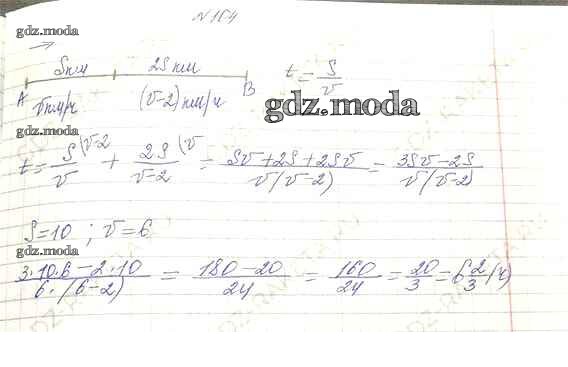 N 164
gdz.moda
S км 2S км
A B t = S/v
v км/ч (v-2) км/ч
gdz.moda
gdz.moda
t = S/v (v-2 + 2S/(v-2) (v = (Sv+2S+2Sv)/(v(v-2)) = (3Sv-2S)/(v(v-2)
S=10 ; v=6
gdz.moda
(3·10·6-2·10)/(6·(6-2)) = (180-20)/24 = 160/24 = 20/3 = 6 2/3 (ч)